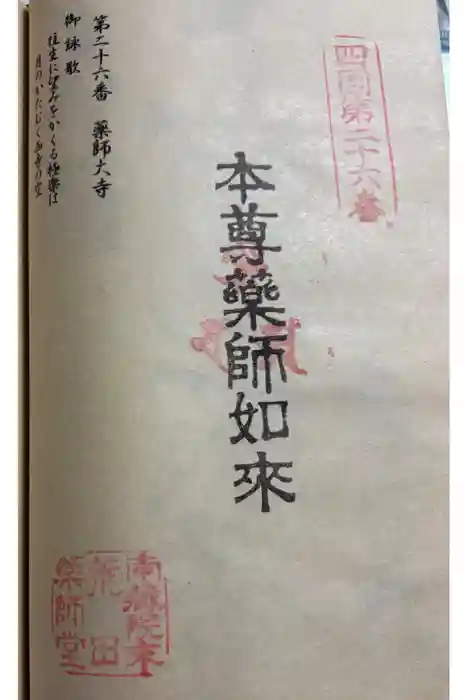 四国第二十六番
本尊薬師如来
南蔵院末
荒田
薬師堂
第二十六番　薬師大寺
御詠歌
往生に望みをかくる極楽は
月のかたむく西寺の空